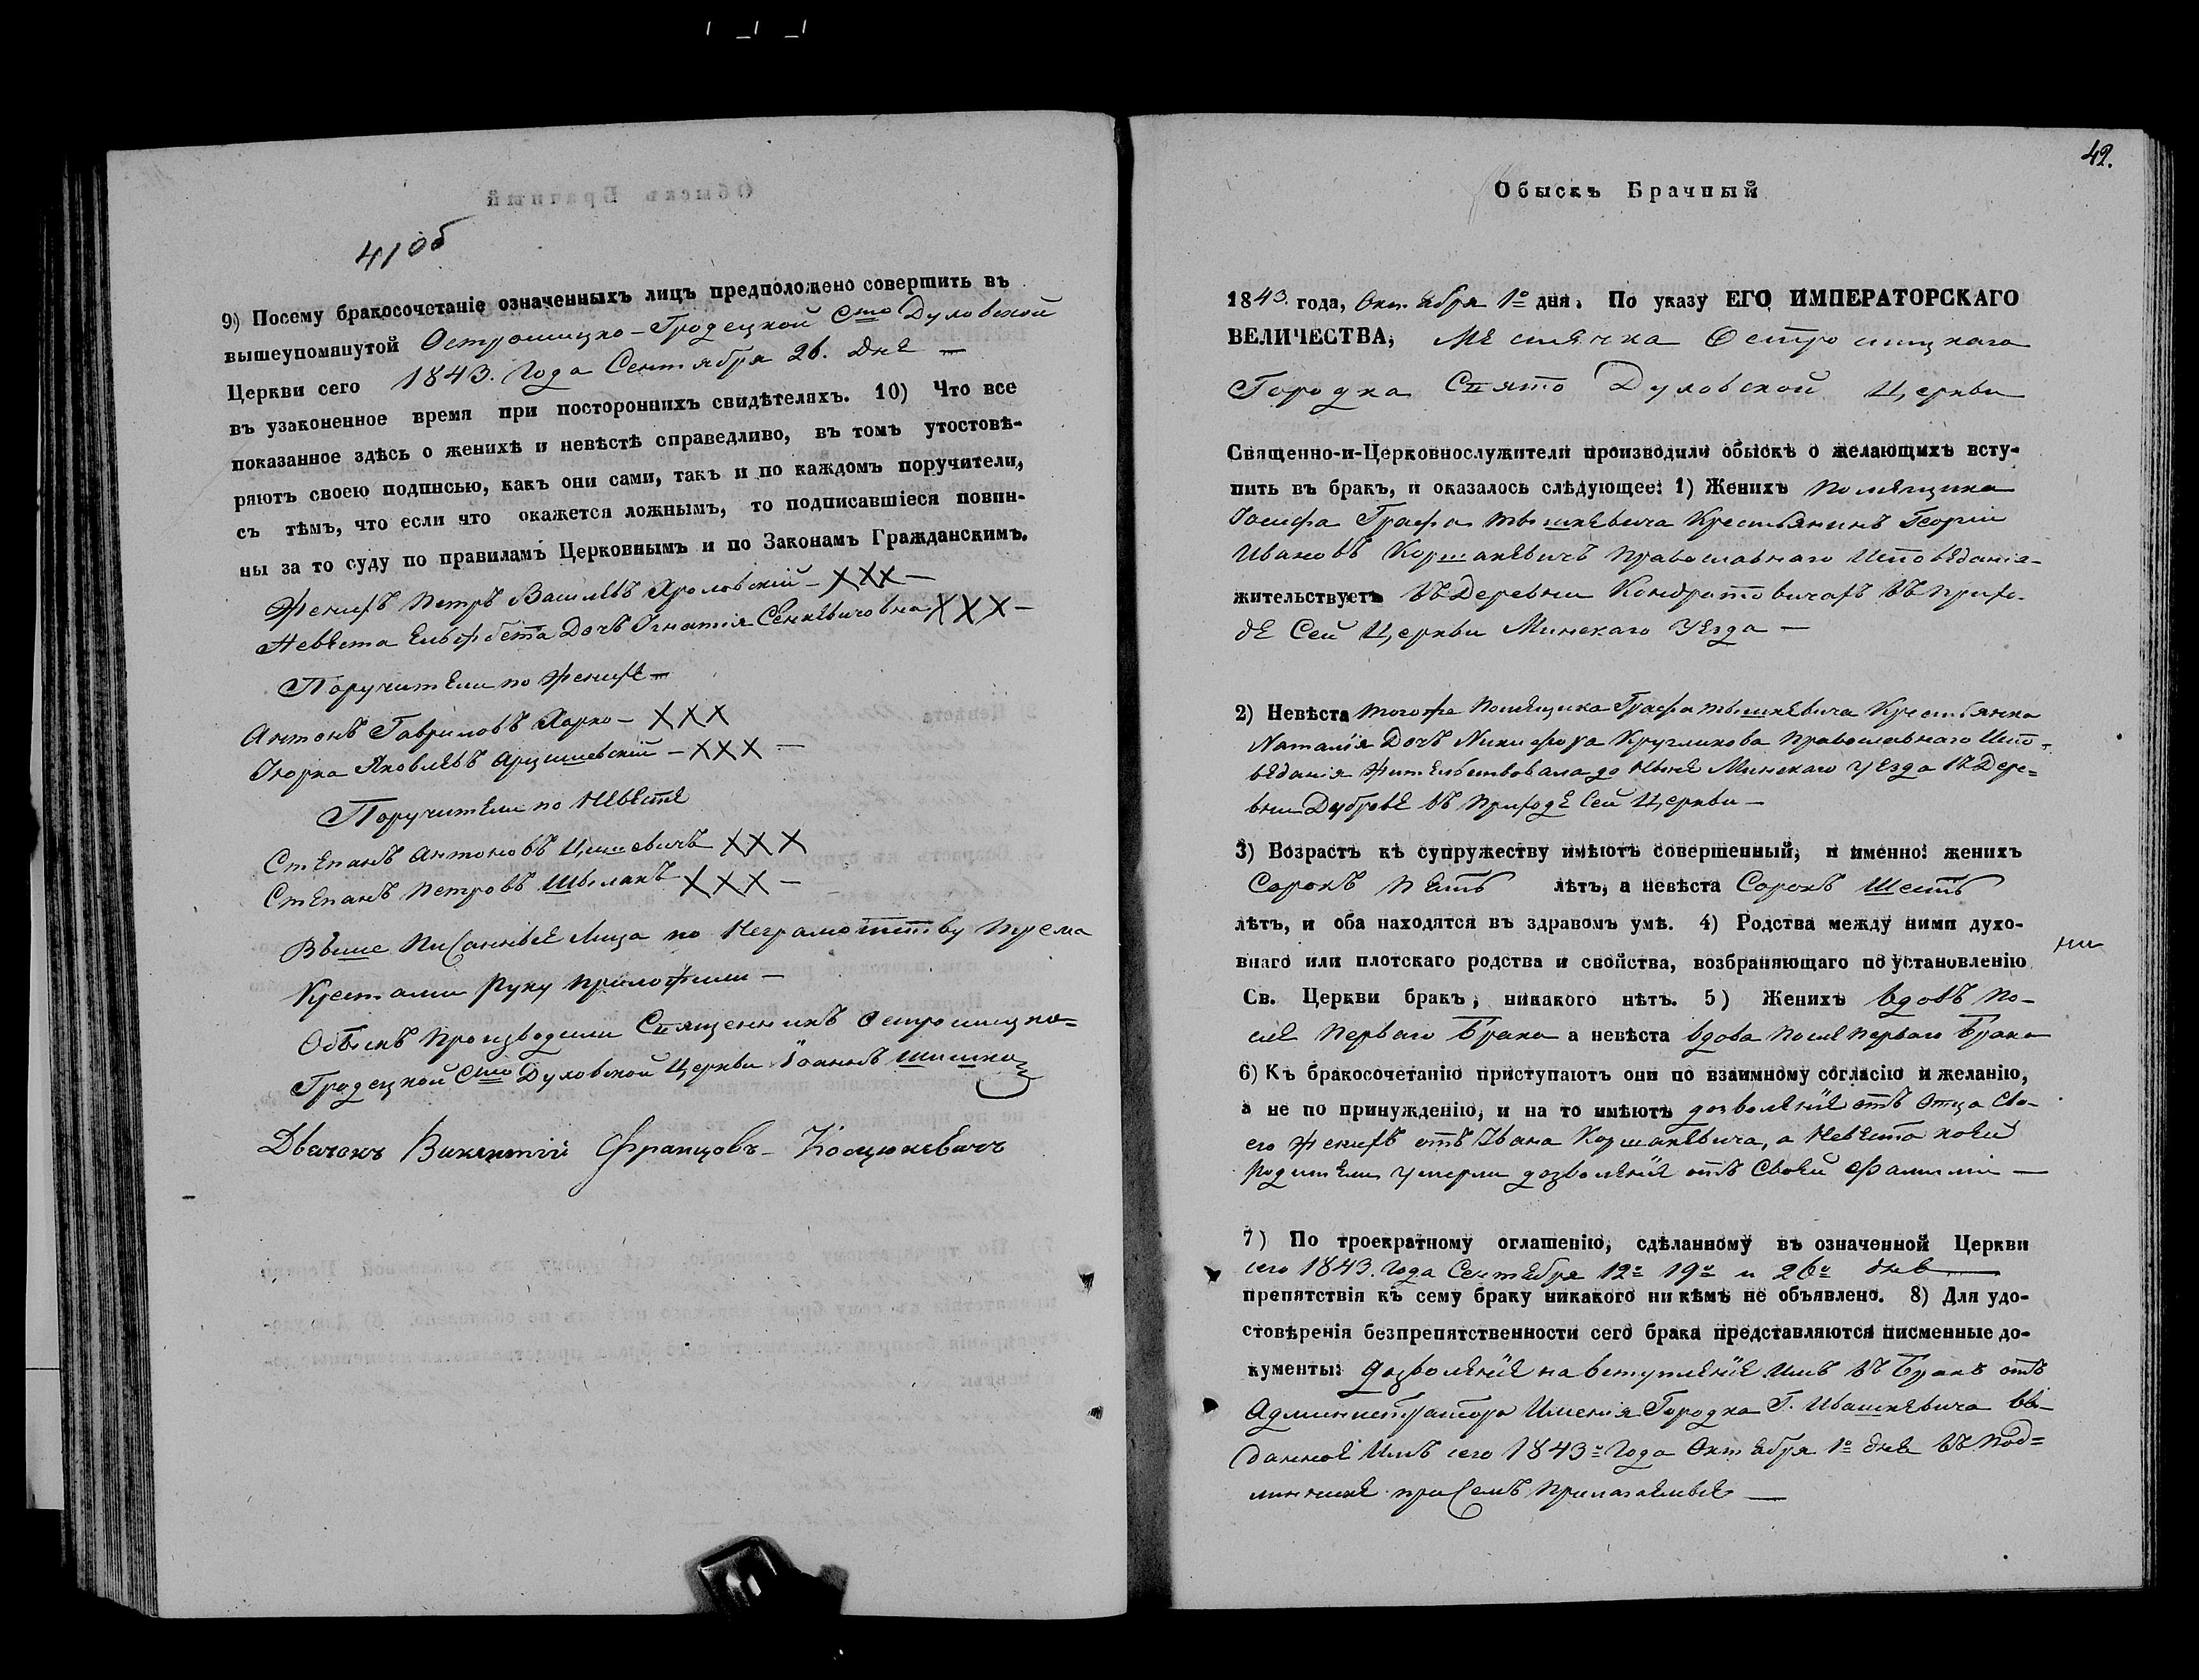 41 об
9) Посему бракосочетаніе означенныхъ лицъ предположено совершить въ
вышеупомянутой Острошицко-Гродецкой Сто Духовской
Церкви сего 1843. Года Сентября 26. дня —
въ узаконенное время при постороннихъ свидѣтеляхъ. 10) Что все
показанное здѣсь о женихѣ и невѣстѣ справедливо, въ томъ утостовѣ-
ряютъ своею подписью, какъ они сами, такъ и по каждомъ поручители,
съ тѣмъ, что если что окажется ложнымъ, то подписавшіеся повин-
ны за то суду по правиламъ Церковнымъ и по Законамъ Гражданскимъ.
Женихъ Петръ Васильевъ – XXX –
Невѣста Дочъ Игнатія Сенкевичовна XXX –
Поручители по женихѣ –
Антонъ Гавриловъ Харко – XXX
Яковлевъ Арцишевскій – XXX –
Поручители по невѣстѣ
Степанъ Антоновъ XXX
Степанъ Петровъ XXX –
Выше писанныѣ лица по неграмотству трема
крестами руку приложили –
Обыскъ производили Священникъ Острошицко=
Гродецкой Сто Духовской Церкви Іоаннъ Шишко
Дьячокъ Викентій Францовъ – Костюкевичъ
42.
Обыскъ Брачный
1843. года, Октября 1о дня. По указу ЕГО ИМПЕРАТОРСКАГО
ВЕЛИЧЕСТВА, Мѣстечка Острошицкаго
Городка Свято Духовской Церкви
Священно-и-Церковнослужители производили обыскъ о желающихъ всту-
пить въ бракъ, и оказалось слѣдующее: 1) Женихъ помѣщика
Іосифа Графа Тышкѣвича Крестьянинъ Георгій
Ивановъ Коршакѣвичъ православнаго исповѣданія
жительствуетъ въ деревни Кондратовичахъ въ прихо-
дѣ сей Церкви Минскаго Уезда –
2) Невѣста тогоже помѣщика Графа Тышкѣвича Крестьянка
Наталія Дочъ Никифора Кругликова православнаго испо-
вѣданія жительствовала до нынѣ Минскаго уезда въ дере=
вни Дубровѣ въ приходѣ сей Церкви –
3) Возрастъ къ супружеству имѣютъ совершенный, и именно: женихъ
Сорокъ пять лѣтъ, а невѣста Сорокъ шесть
лѣтъ, и оба находятся въ здравомъ умѣ. 4) Родства между ними духо-
внаго или плотскаго родства и свойства, возбраняющаго по установленію
Св. Церкви бракъ, никакого нѣтъ. 5) Женихъ вдовъ по-
слѣ перваго брака а невѣста вдова послѣ перваго брака
6) Къ бракосочетанію приступаютъ они по взаимному согласію и желанію,
а не по принужденію, и на то имѣютъ дозволѣніѣ отъ отца сво-
его женихъ отъ Ивана Коршакѣвича, а невѣста коей
родитѣли умерли дозволѣніѣ отъ своѣй фамиліи —
7) По троекратному оглашенію, сдѣланному въ означенной Церкви
сего 1843. года Сентября 12о 19о и 26о дня
препятствія къ сему браку никакого ни кѣмъ не объявлено. 8) Для удо-
стовѣренія безпрепятственности сего брака представляются писменные до-
кументы: дозволѣніѣ на вступлѣніѣ имъ въ бракъ отъ
Администратора Имѣнія Городка Г. Ивашкѣвича вы-
данноѣ имъ сего 1843о года Октября 1о дня въ под=
линникѣ при семъ прилагаемыѣ —